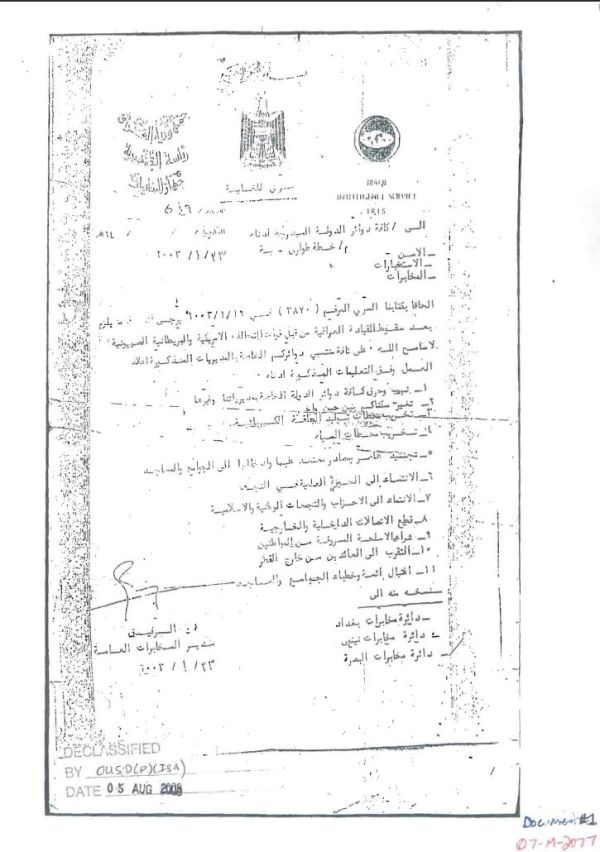 جمهورية العراق
رئاسة الجمهورية
جهاز المخابرات
سري للغاية
IRAQI
INTELLIGENCE SERVICE
I R I S
٥٤٩
الى / كافة دوائر الدولة المدرجة ادناه
م/ خطة طوارئ
٢٠٠٣ / ١ / ٢٣
ــ الامن
ــ الاستخبارات
ــ المخابرات
الحاقا بكتابنا السري المرقم ( ٣٨٧٠ ) في ٢٠٠٣/١/١٦ يرجى يلزم
بعد سقوط القيادة العراقية من قبل قوات التحالف الامريكية والبريطانية الصهيونية
لا سامح الله على كافة منتسبي دوائركم الخاصة بالمديريات المذكورة اعلاه
العمل وفق التعليمات المذكورة ادناه
١ــ نهب وحرق كافة دوائر الدولة الخاصة بمديرياتنا وغيرها
٢ــ تغيير بين حين واخر
٣ــ تخريب محطات توليد الطاقة الكهربائية
٤ــ تخريب محطات المياه
٥ــ تجنيد عناصر عليها وادخالها الى الجوامع والمساجد
٦ــ الانتماء الى الحوزة العلمية في النجف
٧ــ الانتماء الى الاحزاب والتجمعات الوطنية والاسلامية
٨ــ قطع الاتصالات الداخلية والخارجية
٩ــ شراء الاسلحة المسروقة من المواطنين
١٠ــ التقرب الى العائدين من خارج القطر
١١ــ اغتيال ائمة وخطباء الجوامع والمساجد
نسخه منه الى
ــ دائرة مخابرات بغداد
ــ دائرة مخابرات نينوى
ــ دائرة مخابرات البصرة
مدير المخابرات العامة
٢٠٠٣ / ١ / ٢٣
DECLASSIFIED
BY OUSD(P)(ISA)
DATE 05 AUG 2008
Document #1
07-M-2077